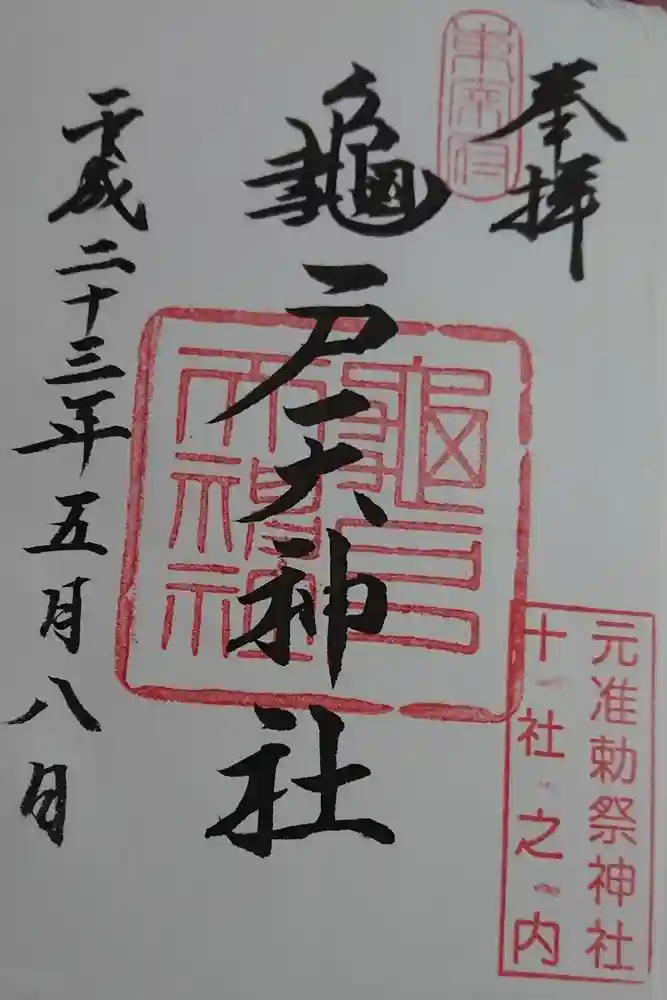 奉拝
東宰府
元准勅祭神社
十社之内
龜戸天神社
龜戸
天神社
平成二十三年五月八日